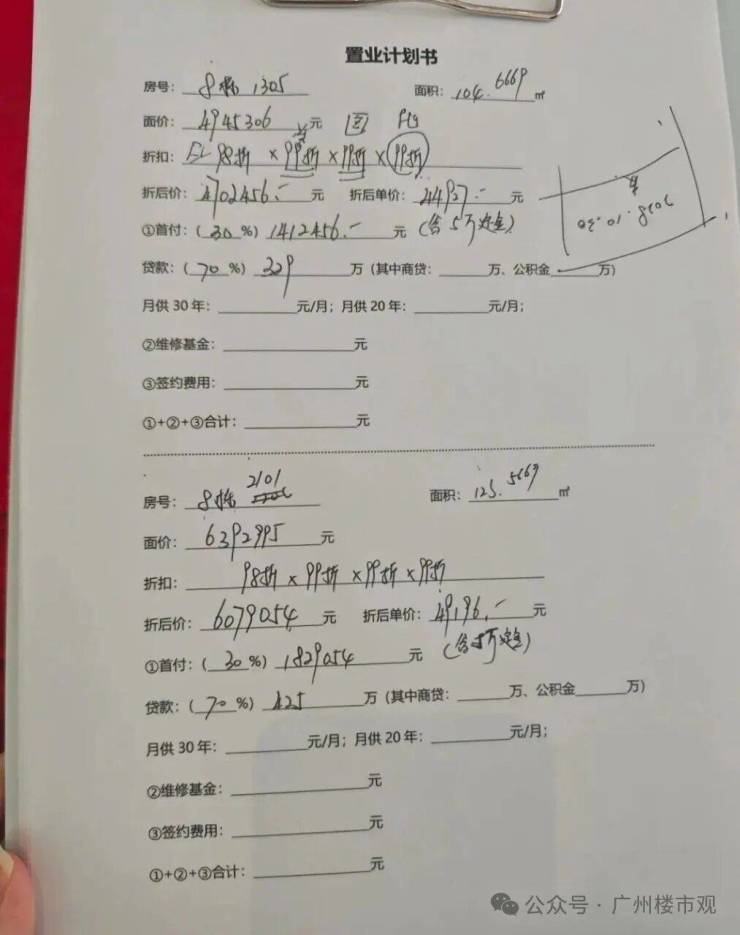 置业计划书
房号: 8栋 1305 面积: 104.6669 ㎡
面价: 4945306 元
折扣: 98折 × 99折 × 99折 × 99折
折后价: 4702456.- 元 折后单价: 44927.- 元
①首付: ( 30 %) 1412456.- 元 (含5万定金)
贷款: ( 70 %) 329 万 (其中商贷: 万、公积金 万)
月供 30 年: 元/月; 月供 20 年: 元/月;
②维修基金: 元
③签约费用: 元
①+②+③合计: 元
房号: 8栋 2101 面积: 123.5669 ㎡
面价: 6392995 元
折扣: 98折 × 99折 × 99折 × 99折
折后价: 6079054 元 折后单价: 49196.- 元
①首付: ( 30 %) 1829054 元 (含5万定金)
贷款: ( 70 %) 425 万 (其中商贷: 万、公积金 万)
月供 30 年: 元/月; 月供 20 年: 元/月;
②维修基金: 元
③签约费用: 元
①+②+③合计: 元
公众号 · 广州楼市观